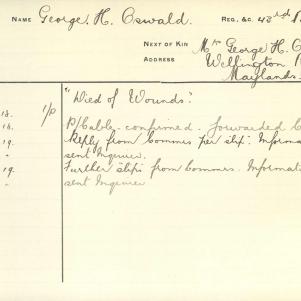 NAME George. H. Oswald. REG. &C. 43rd
NEXT OF KIN Mr George H. O
ADDRESS Wellington
Maylands.
"Died of Wounds".
18. 1/P P/Cable. confirmed. forwarded
19. Reply from Commrs per slip. Informat
" sent Enquirer.
19. Further slips from Commrs. Informat
" sent Enquirer